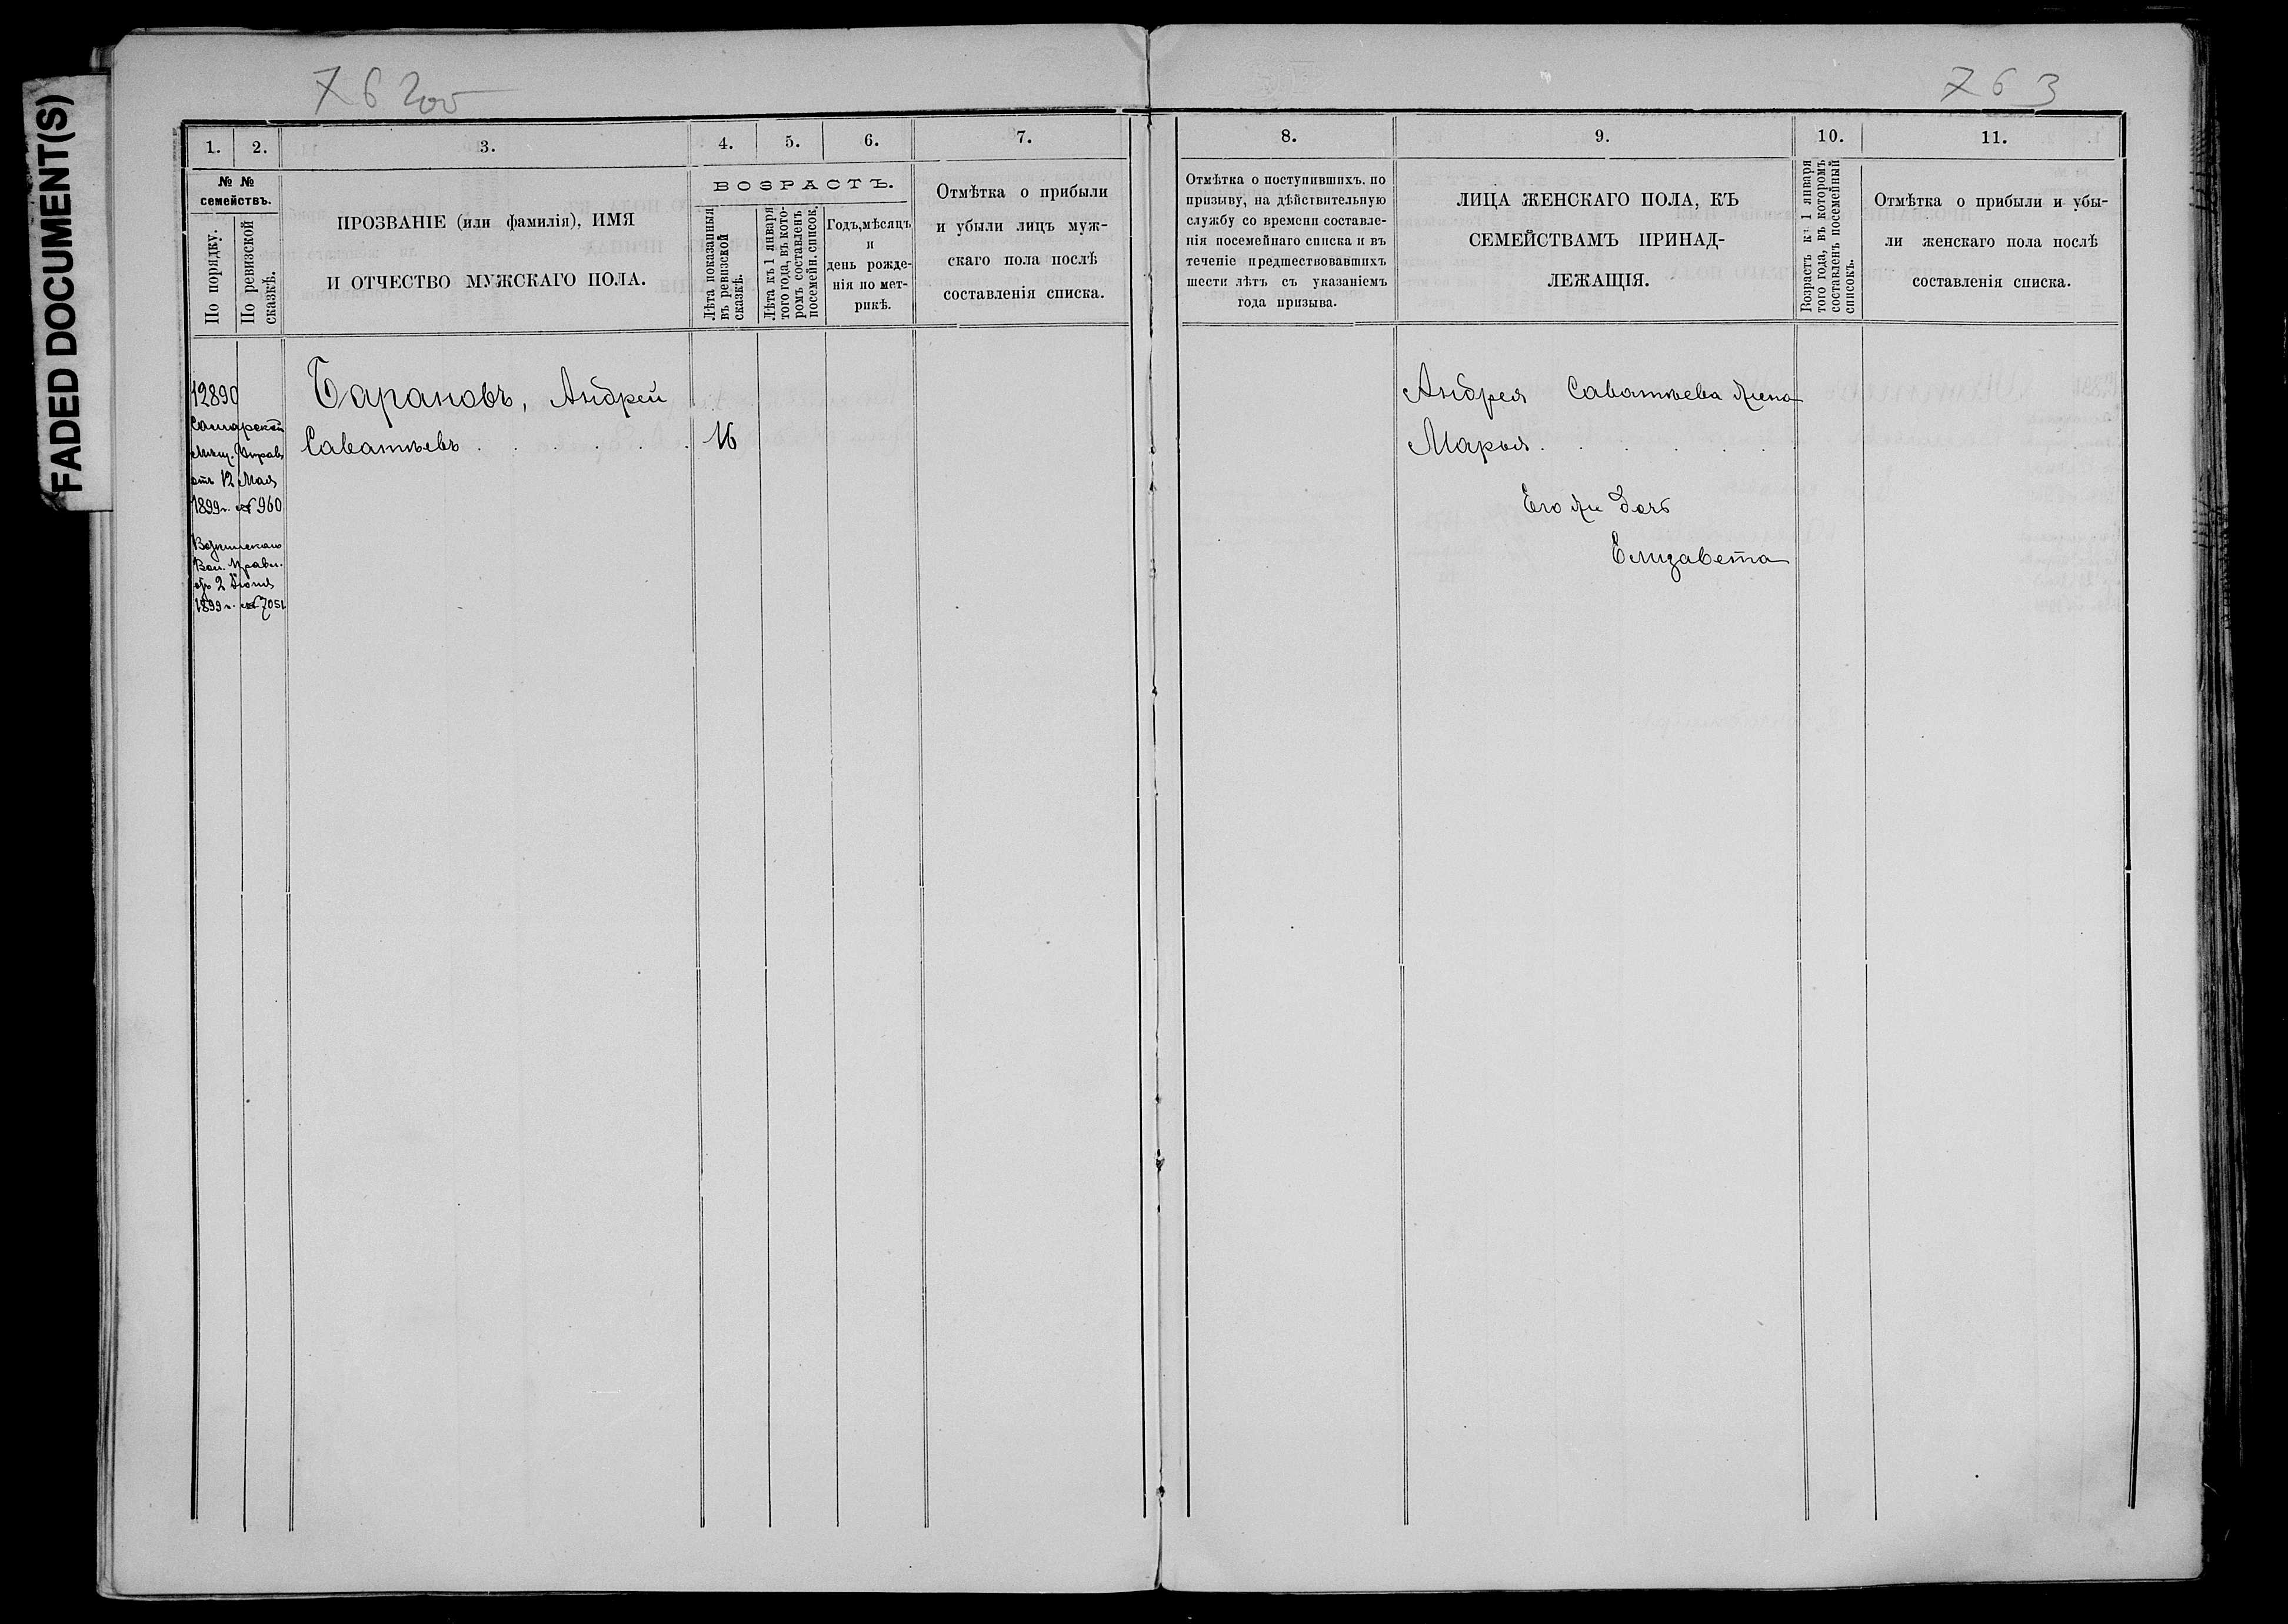 FADED DOCUMENT(S)
762об
763
1. 2. 3. 4. 5. 6. 7.
№ №
семействъ.
По порядку.
По ревизской
сказкѣ.
ПРОЗВАНІЕ (или фамилія), ИМЯ
И ОТЧЕСТВО МУЖСКАГО ПОЛА.
ВОЗРАСТЪ.
Лѣта показанныя
въ ревизской
сказкѣ.
Лѣта къ 1 января
того года, въ кото-
ромъ составленъ
посемейн. список.
Годъ, мѣсяцъ
и
день рожде-
нія по мет-
рикѣ.
Отмѣтка о прибыли
и убыли лицъ муж-
скаго пола послѣ
составленія списка.
12890
Самарской
Мѣщ. Управ.
отъ 12 Мая
1899 г. № 960
Вол. Правл.
1899 г. № 7051
Барановъ, Андрей
Саватѣевъ . . . . . . 16
8. 9. 10. 11.
Отмѣтка о поступившихъ. по
призыву, на дѣйствительную
службу со времени составле-
нія посемейнаго списка и въ
теченіе предшествовавшихъ
шести лѣтъ съ указаніемъ
года призыва.
ЛИЦА ЖЕНСКАГО ПОЛА, КЪ
СЕМЕЙСТВАМЪ ПРИНАД-
ЛЕЖАЩІЯ.
Возрастъ къ 1 января
того года, въ которомъ
составленъ посемейный
списокъ.
Отмѣтка о прибыли и убы-
ли женскаго пола послѣ
составленія списка.
Андрея Саватѣева жена
Марья . . . . . . .
Его же дочь
Елизавета